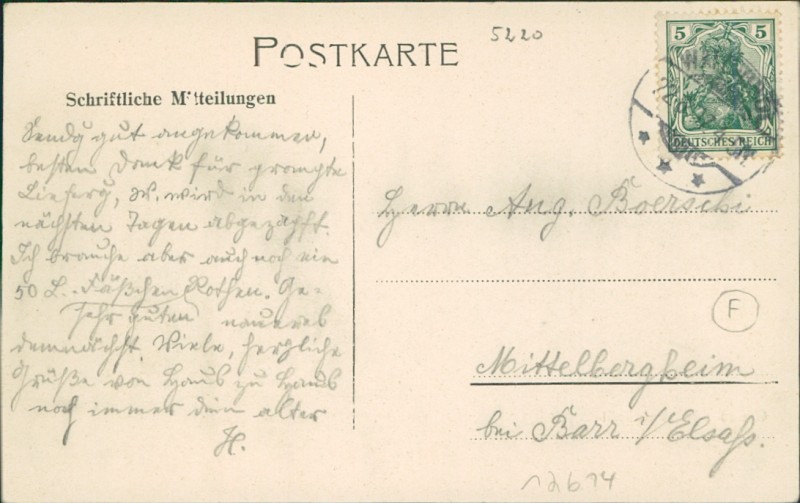 5220
POSTKARTE
5 5
DEUTSCHES REICH
Schriftliche Mitteilungen
Sendg gut angekommen,
besten Dank für prompte
Lieferg, W. wird in den
nächsten Tagen abgezapft.
Ich brauche aber auch noch ein
50 L. Fäßchen Rothen. Ge-
sehr guten
naueres
demnächst. Viele, herzliche
Grüße von Haus zu Haus
noch immer dein alter
H.
Herrn Aug. Boersch
F
Mittelbergheim
bei Barr i/Elsaß.
12614